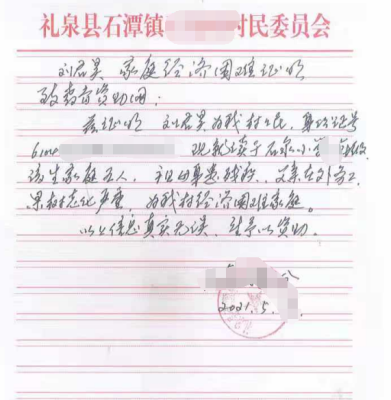 礼泉县石潭镇 村民委员会
刘君昊 家庭经济困难证明
致教育资助网:
兹证明 刘君昊为我村村民,身份证号
现就读于石泉小学
该生家庭五人,祖母身患残疾,父亲在外务工
果树老化严重,为我村经济困难家庭。
以上信息真实无误,请予以资助。
2021.5.